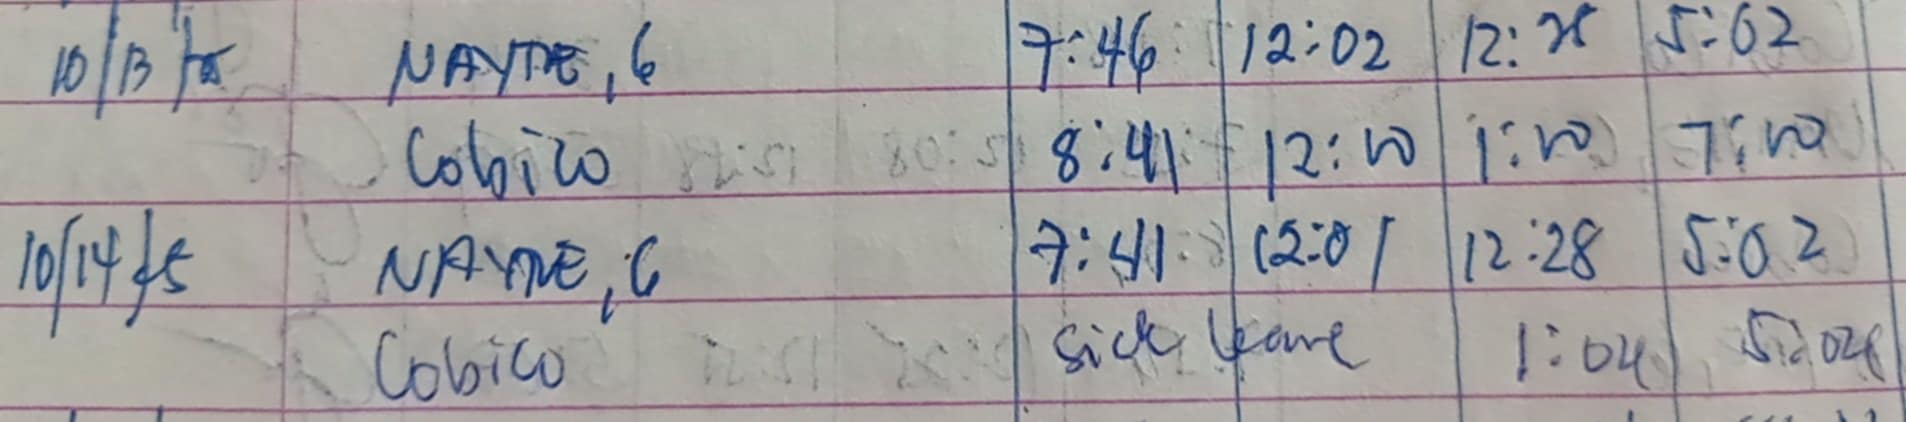 10/13/25 NAYDE, G 7:46 12:02 12:28 5:02
Cobico 8:41 12:10 1:10 7:10
10/14/25 NAYDE, G 7:41 12:01 12:28 5:02
Cobico sick leave 1:04 5:04